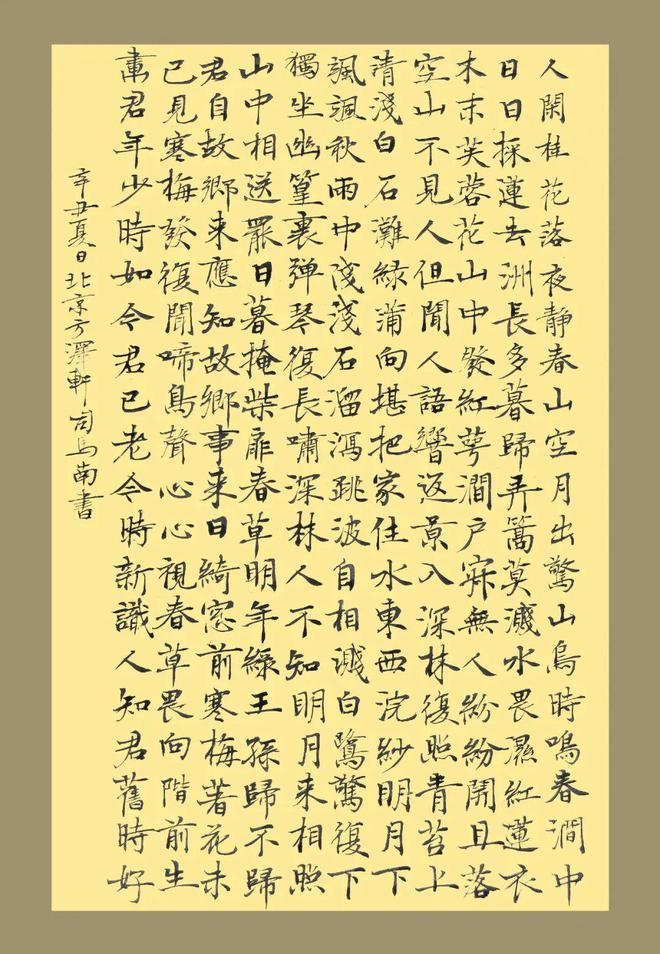 人閑桂花落夜靜春山空月出驚山鳥時鳴春澗中
日日採蓮去洲長多暮歸弄篙莫濺水畏濕紅蓮衣
木末芙蓉花山中發紅萼澗户寂無人紛紛開且落
空山不見人但聞人語響返景入深林復照青苔上
清淺白石灘綠蒲向堪把家住水東西浣紗明月下
颯颯秋雨中淺淺石溜瀉跳波自相濺白鷺驚復下
獨坐幽篁裏弹琴復長嘯深林人不知明月来相照
山中相送罷日暮掩柴扉春草明年綠王孫歸不歸
君自故鄉来應知故鄉事来日綺窓前寒梅著花未
已見寒梅發復聞啼鳥聲心心視春草畏向階前生
畫君年少時如今君已老今時新識人知君舊時好
辛丑夏日北京方澤軒司馬南書